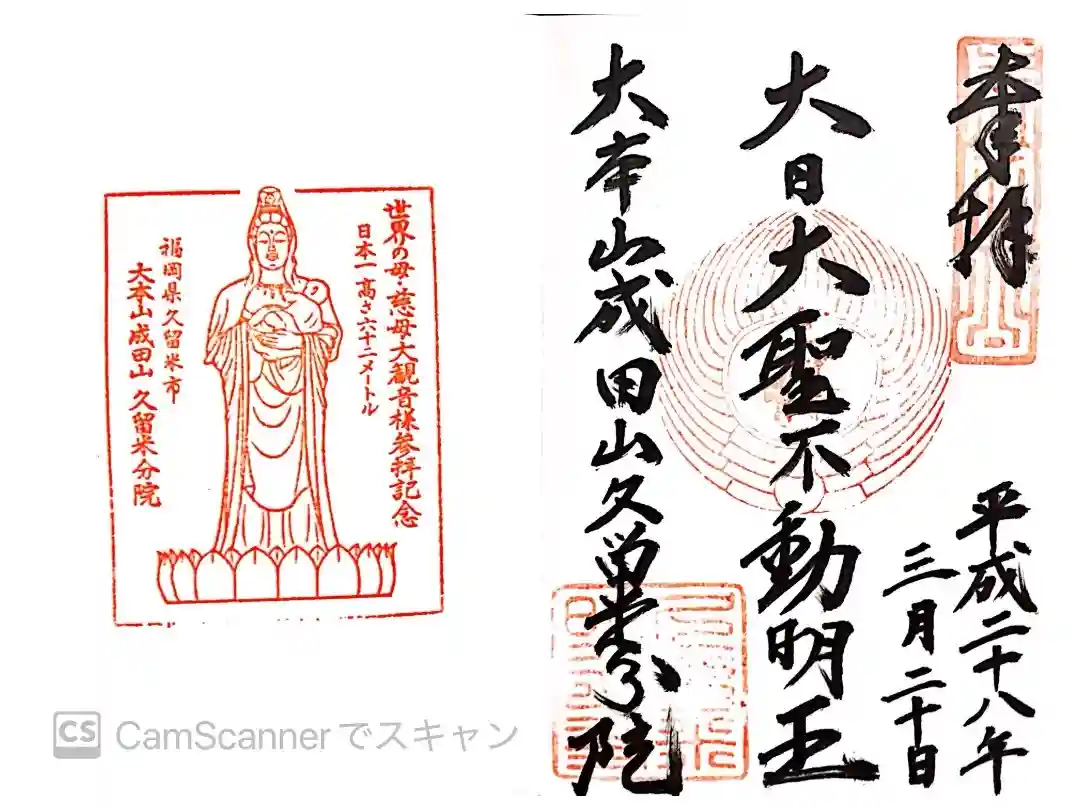 奉拝
平成二十八年
三月二十日
大日大聖不動明王
大本山成田山久留米分院
世界の母・慈母大観音様参拝記念
日本一高さ六十二メートル
福岡県久留米市
大本山成田山 久留米分院
CS CamScannerでスキャン